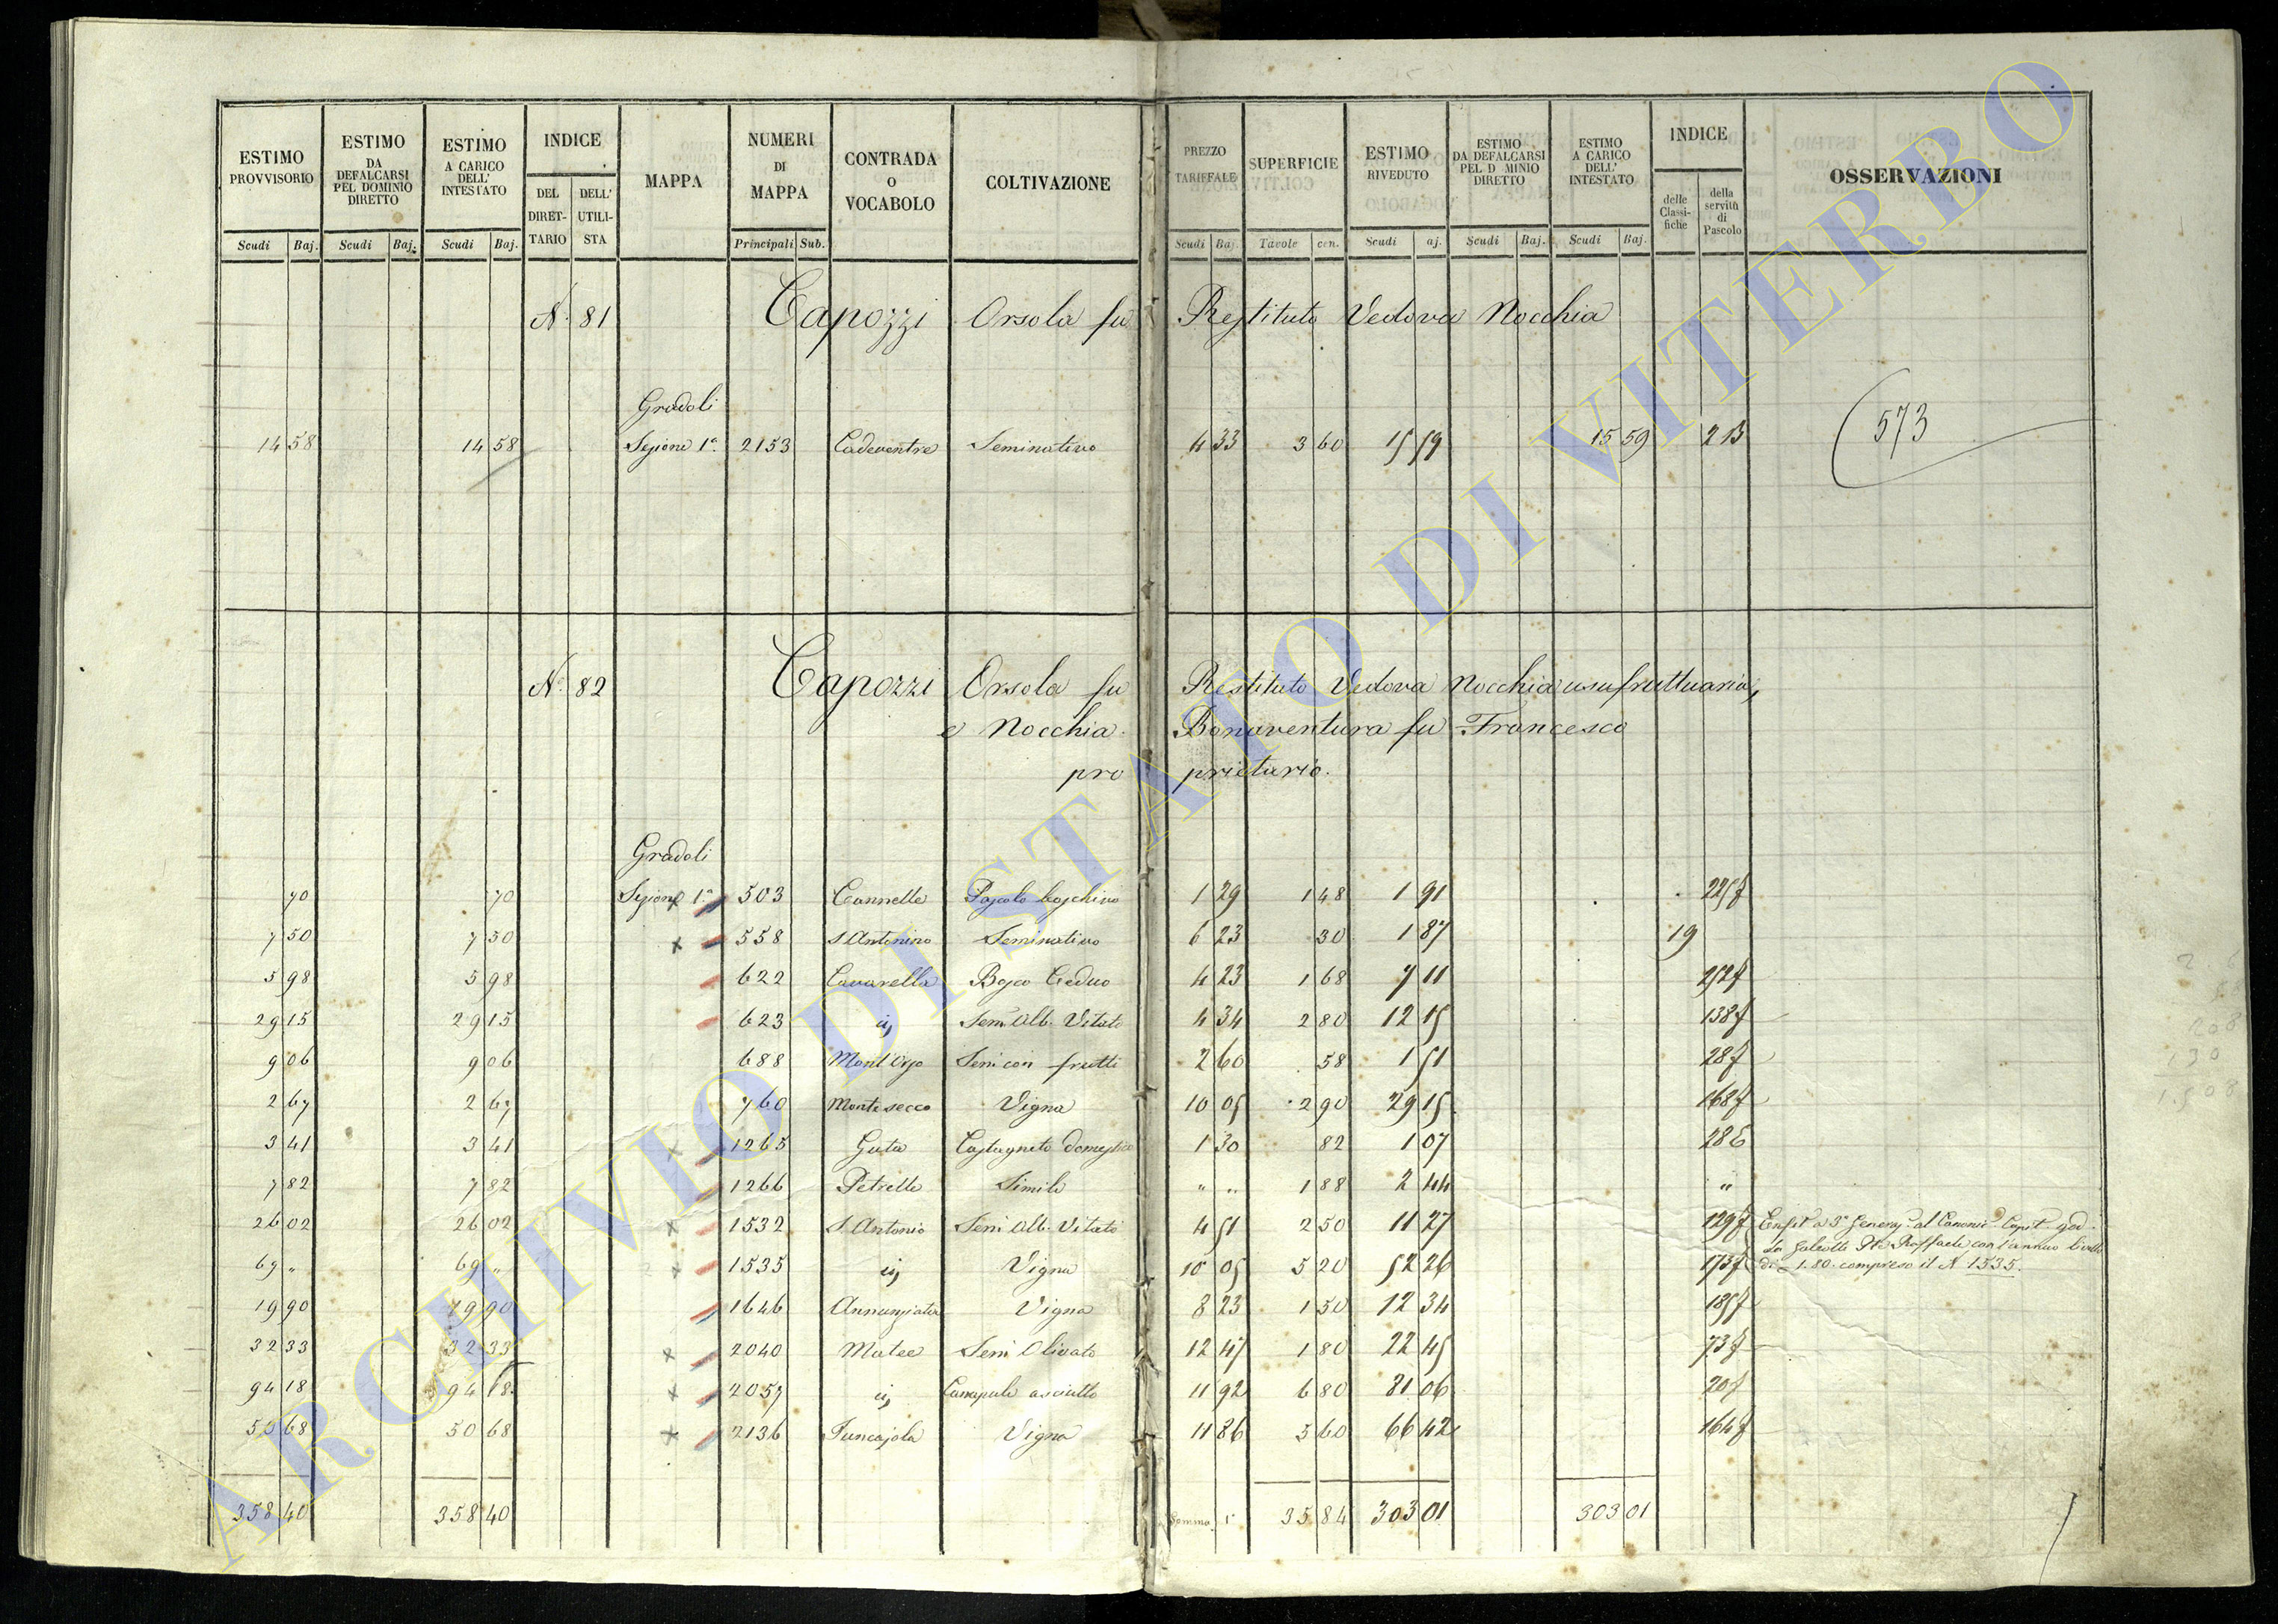 ESTIMO PROVVISORIO
ESTIMO DA DEFALCARSI PEL DOMINIO DIRETTO
ESTIMO A CARICO DELL' INTESTATO
INDICE
DEL DIRET-TARIO
DELL' UTILI-STA
MAPPA
NUMERI DI MAPPA
CONTRADA O VOCABOLO
COLTIVAZIONE
PREZZO TARIFFALE
SUPERFICIE
ESTIMO RIVEDUTO
ESTIMO DA DEFALCARSI PEL D MINIO DIRETTO
ESTIMO A CARICO DELL' INTESTATO
INDICE
delle Classi-fiche
della servitù di Pascolo
OSSERVAZIONI
Scudi Baj. Scudi Baj. Scudi Baj. Principali Sub. Scudi Baj. Tavole cen. Scudi aj. Scudi Baj. Scudi Baj.
N. 81 Capozzi Orsola fu Restituto Vedova Nocchia
Gradoli
14 58 14 58 Sezione 1ª 2153 Cadeventre Seminativo 4 33 3 60 15 59 15 59 213 573
N. 82 Capozzi Orsola fu Restituto Vedova Nocchia usufruttuaria,
e Nocchia Bonaventura fu Francesco
proprietario.
Gradoli
70 70 Sezione 1ª 503 Cannelle Pascolo boschivo 1 29 1 48 1 91 225f
7 50 7 50 558 S Antonino Seminativo 6 23 30 1 87 19
5 98 5 98 622 Cavarella Bosco Ceduo 4 23 1 68 7 11 252f
29 15 29 15 623 id Sem. Alb. Vitato 4 34 2 80 12 15 138f
9 06 9 06 688 Mont'Orso Sem con frutti 2 60 58 1 51 28f
2 67 2 67 760 Montesecco Vigna 10 05 2 90 29 15 168f
3 41 3 41 1265 Guta Castagneto domestico 1 30 82 1 07 286
7 82 7 82 1266 Petrelle Simile " " 1 88 2 44 "
26 02 26 02 1532 S. Antonio Sem Alb. Vitato 4 51 2 50 11 27 129f Enfit a 3ª Generaz. al Canonic. Capit. god.
da Galeotti Pte Raffaele con l'annuo livello
69 " 69 " 1535 id Vigna 10 05 5 20 52 26 173f di 1.80 compreso il N 1535.
19 90 19 90 1646 Annunziata Vigna 8 23 1 50 12 34 185f
32 33 32 33 2040 Matee Sem Olivato 12 47 1 80 22 45 73f
94 18 94 18 2057 id Canapule asciutto 11 92 6 80 81 06 20f
50 68 50 68 2136 Juncajola Vigna 11 86 5 60 66 42 164f
358 40 358 40 Somma 35 84 303 01 303 01
ARCHIVIO DI STATO DI VITERBO